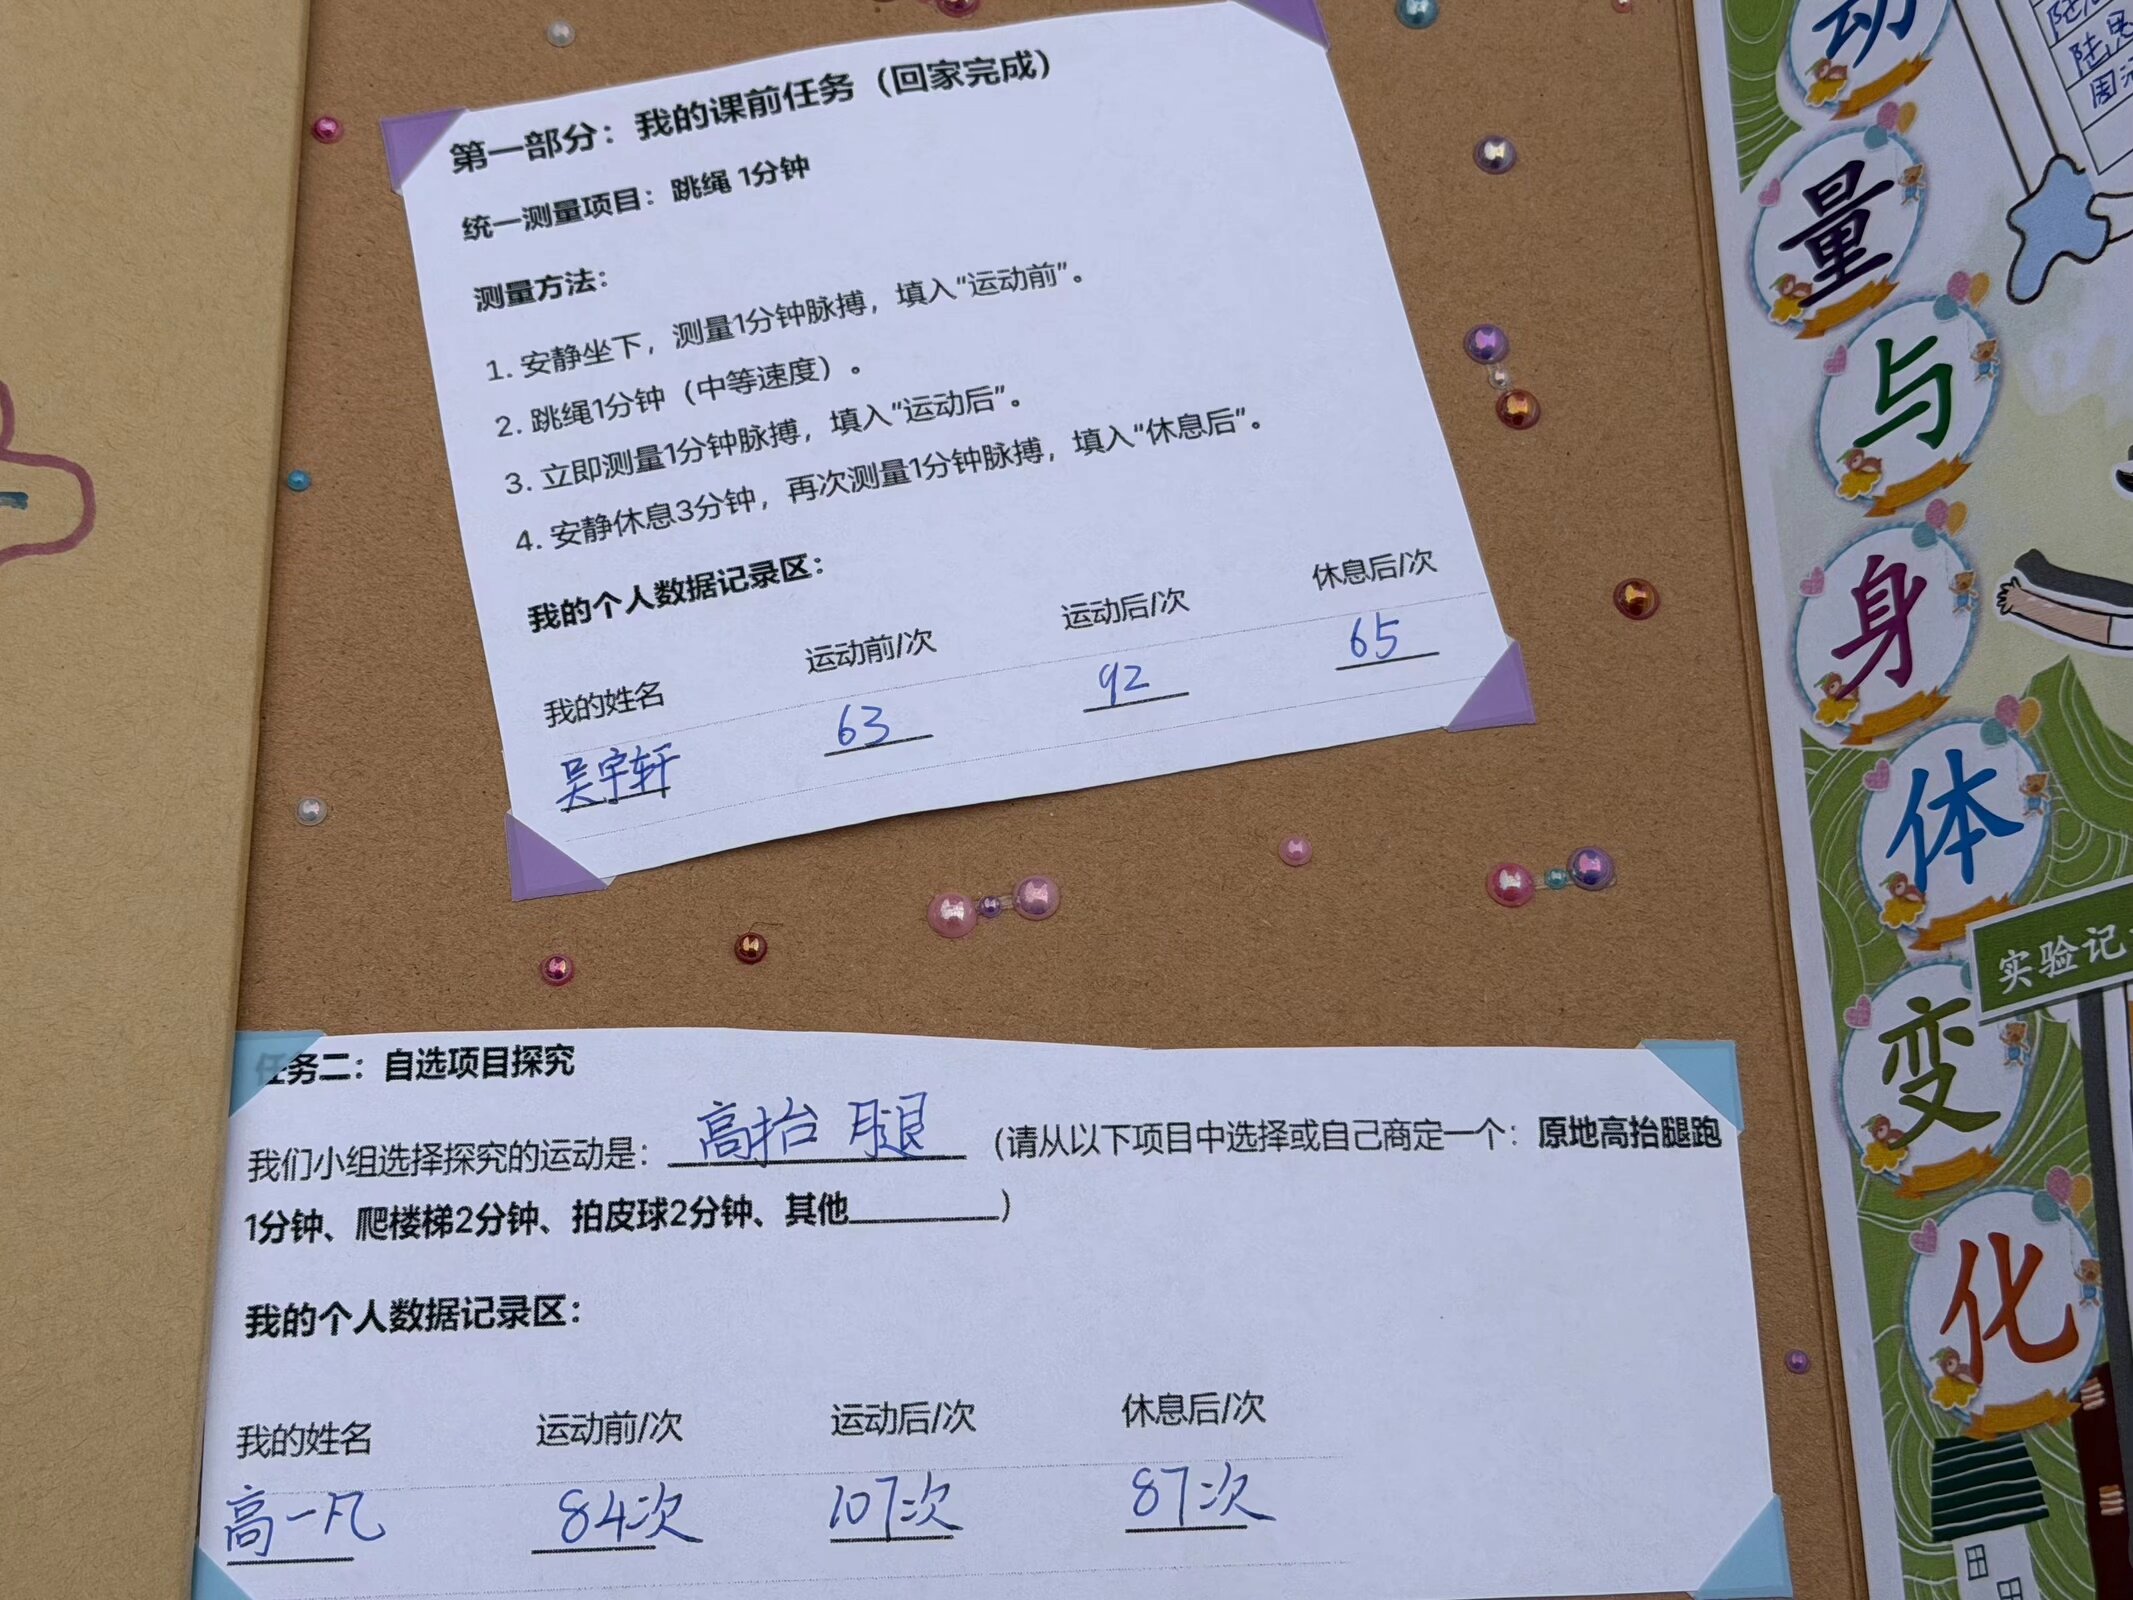 第一部分：我的课前任务（回家完成）
统一测量项目：跳绳 1分钟
测量方法：
1. 安静坐下，测量1分钟脉搏，填入“运动前”。
2. 跳绳1分钟（中等速度）。
3. 立即测量1分钟脉搏，填入“运动后”。
4. 安静休息3分钟，再次测量1分钟脉搏，填入“休息后”。
我的个人数据记录区：
我的姓名 运动前/次 运动后/次 休息后/次
吴宇轩 63 92 65
任务二：自选项目探究
我们小组选择探究的运动是：高抬腿（请从以下项目中选择或自己商定一个：原地高抬腿跑
1分钟、爬楼梯2分钟、拍皮球2分钟、其他________）
我的个人数据记录区：
我的姓名 运动前/次 运动后/次 休息后/次
高一凡 84次 107次 87次
动
量
与
身
体
变
化
实验记